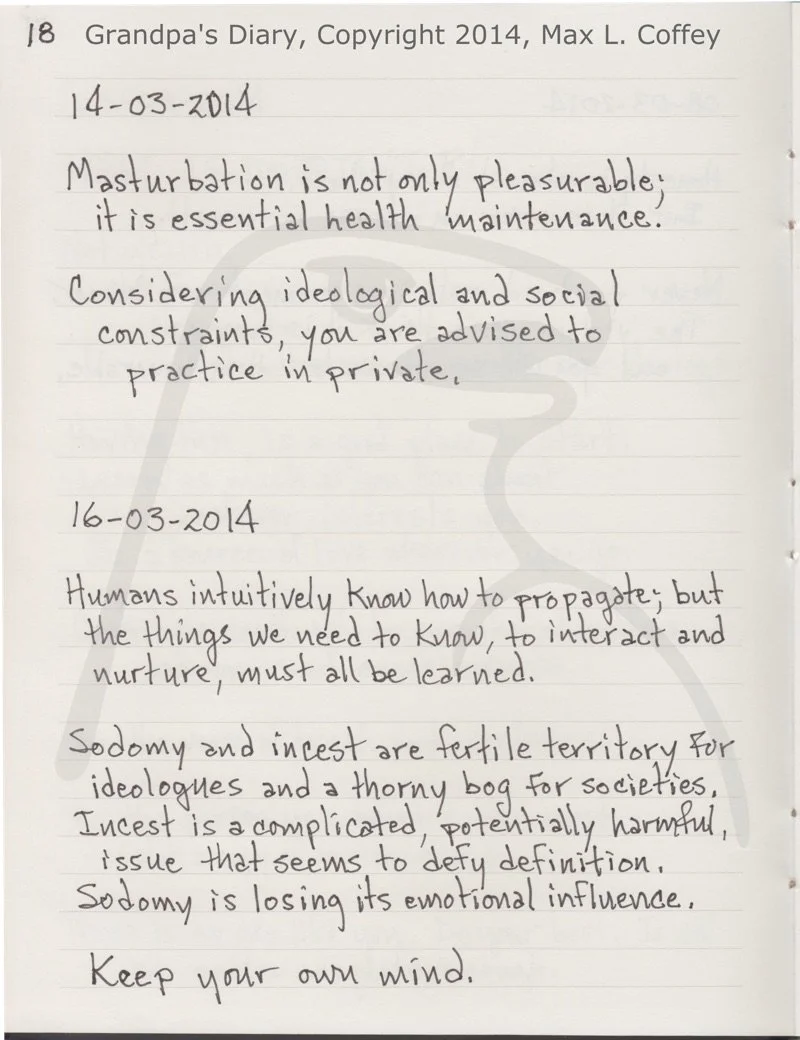 18 Grandpa's Diary, Copyright 2014, Max L. Coffey
14-03-2014
Masturbation is not only pleasurable;
it is essential health maintenance.
Considering ideological and social
constraints, you are advised to
practice in private.
16-03-2014
Humans intuitively know how to propagate; but
the things we need to know, to interact and
nurture, must all be learned.
Sodomy and incest are fertile territory for
ideologues and a thorny bog for societies.
Incest is a complicated, potentially harmful,
issue that seems to defy definition.
Sodomy is losing its emotional influence.
Keep your own mind.